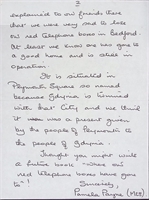 2
explained to our friends there
that we were very sad to lose
our red telephone boxes in Bedford.
At least we know one has gone to
a good home and is still in
operation.
It is situated in
Plymouth Square so named
because Gdynia is twinned
with that City and we think
it was a present given
by the people of Plymouth to
the people of Gdynia.
Thought you might write
a future book - "Where our
red telephone boxes have gone
to"!
Sincerely,
Pamela Payne (MRS)